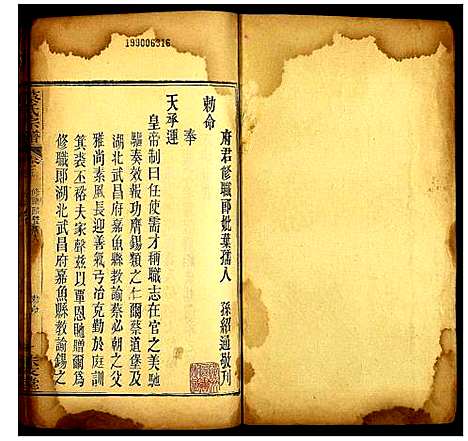 199006316
勅命
府君修職郎妣葉孺人 孫紹通敬刊
奉
天承運
皇帝制曰任使需才稱職志在官之美馳
驅奏效報功膺錫類之仁爾蔡道堡乃
湖北武昌府嘉魚縣教諭蔡必朝之父
雅尚素風長迎善氣弓冶克勤於庭訓
箕裘丕裕夫家聲茲以覃恩貤贈爾爲
修職郎湖北武昌府嘉魚縣教諭錫之
蔡氏宗譜